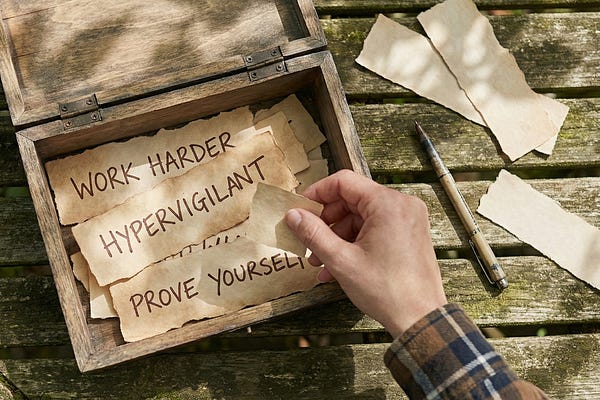 WORK HARDER
HYPERVIGILANT
PROVE YOURSELF